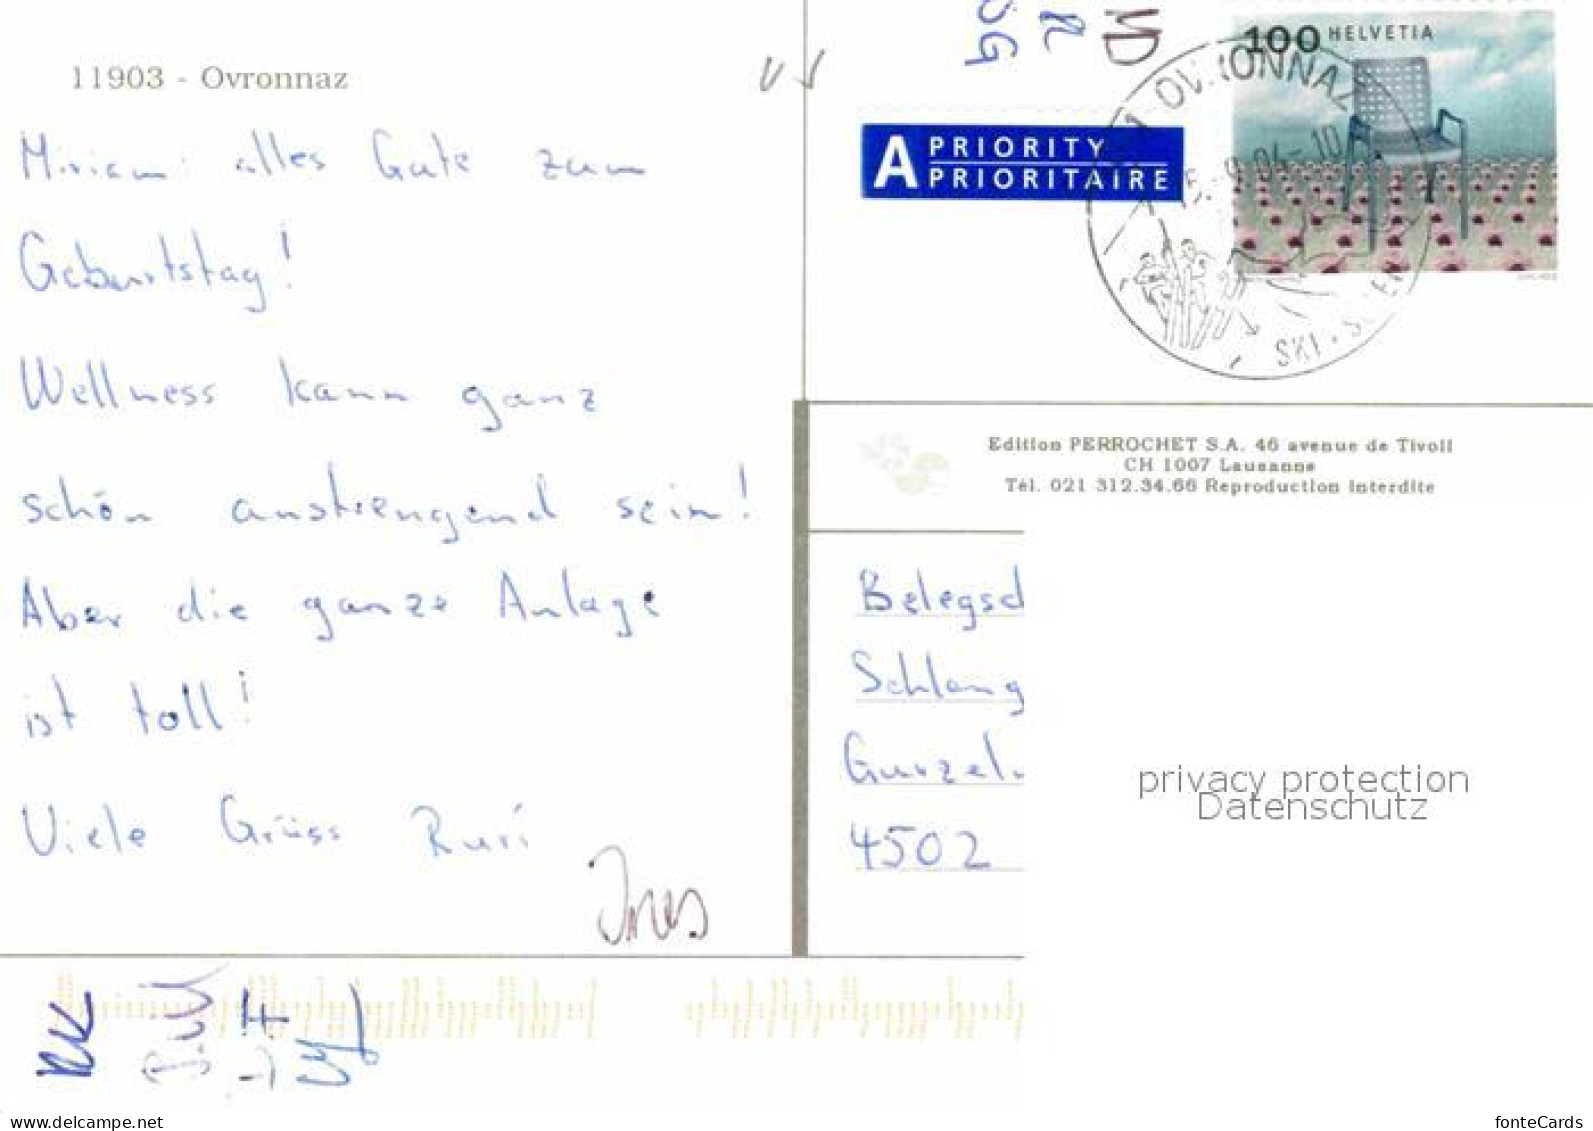 11903 - Ovronnaz
Miriam alles Gute zum
Geburtstag!
Wellness kann ganz
schön anstrengend sein!
Aber die ganze Anlage
ist toll!
Viele Grüss Ruri
Ines
A PRIORITY
PRIORITAIRE
100 HELVETIA
OVRONNAZ
9.04-10
SKI
Edition PERROCHET S.A. 46 avenue de Tivoli
CH 1007 Lausanne
Tél. 021 312.34.66 Reproduction interdite
Belegsc
Schlang
Gurzel
4502
privacy protection
Datenschutz
www.delcampe.net
fonteCards